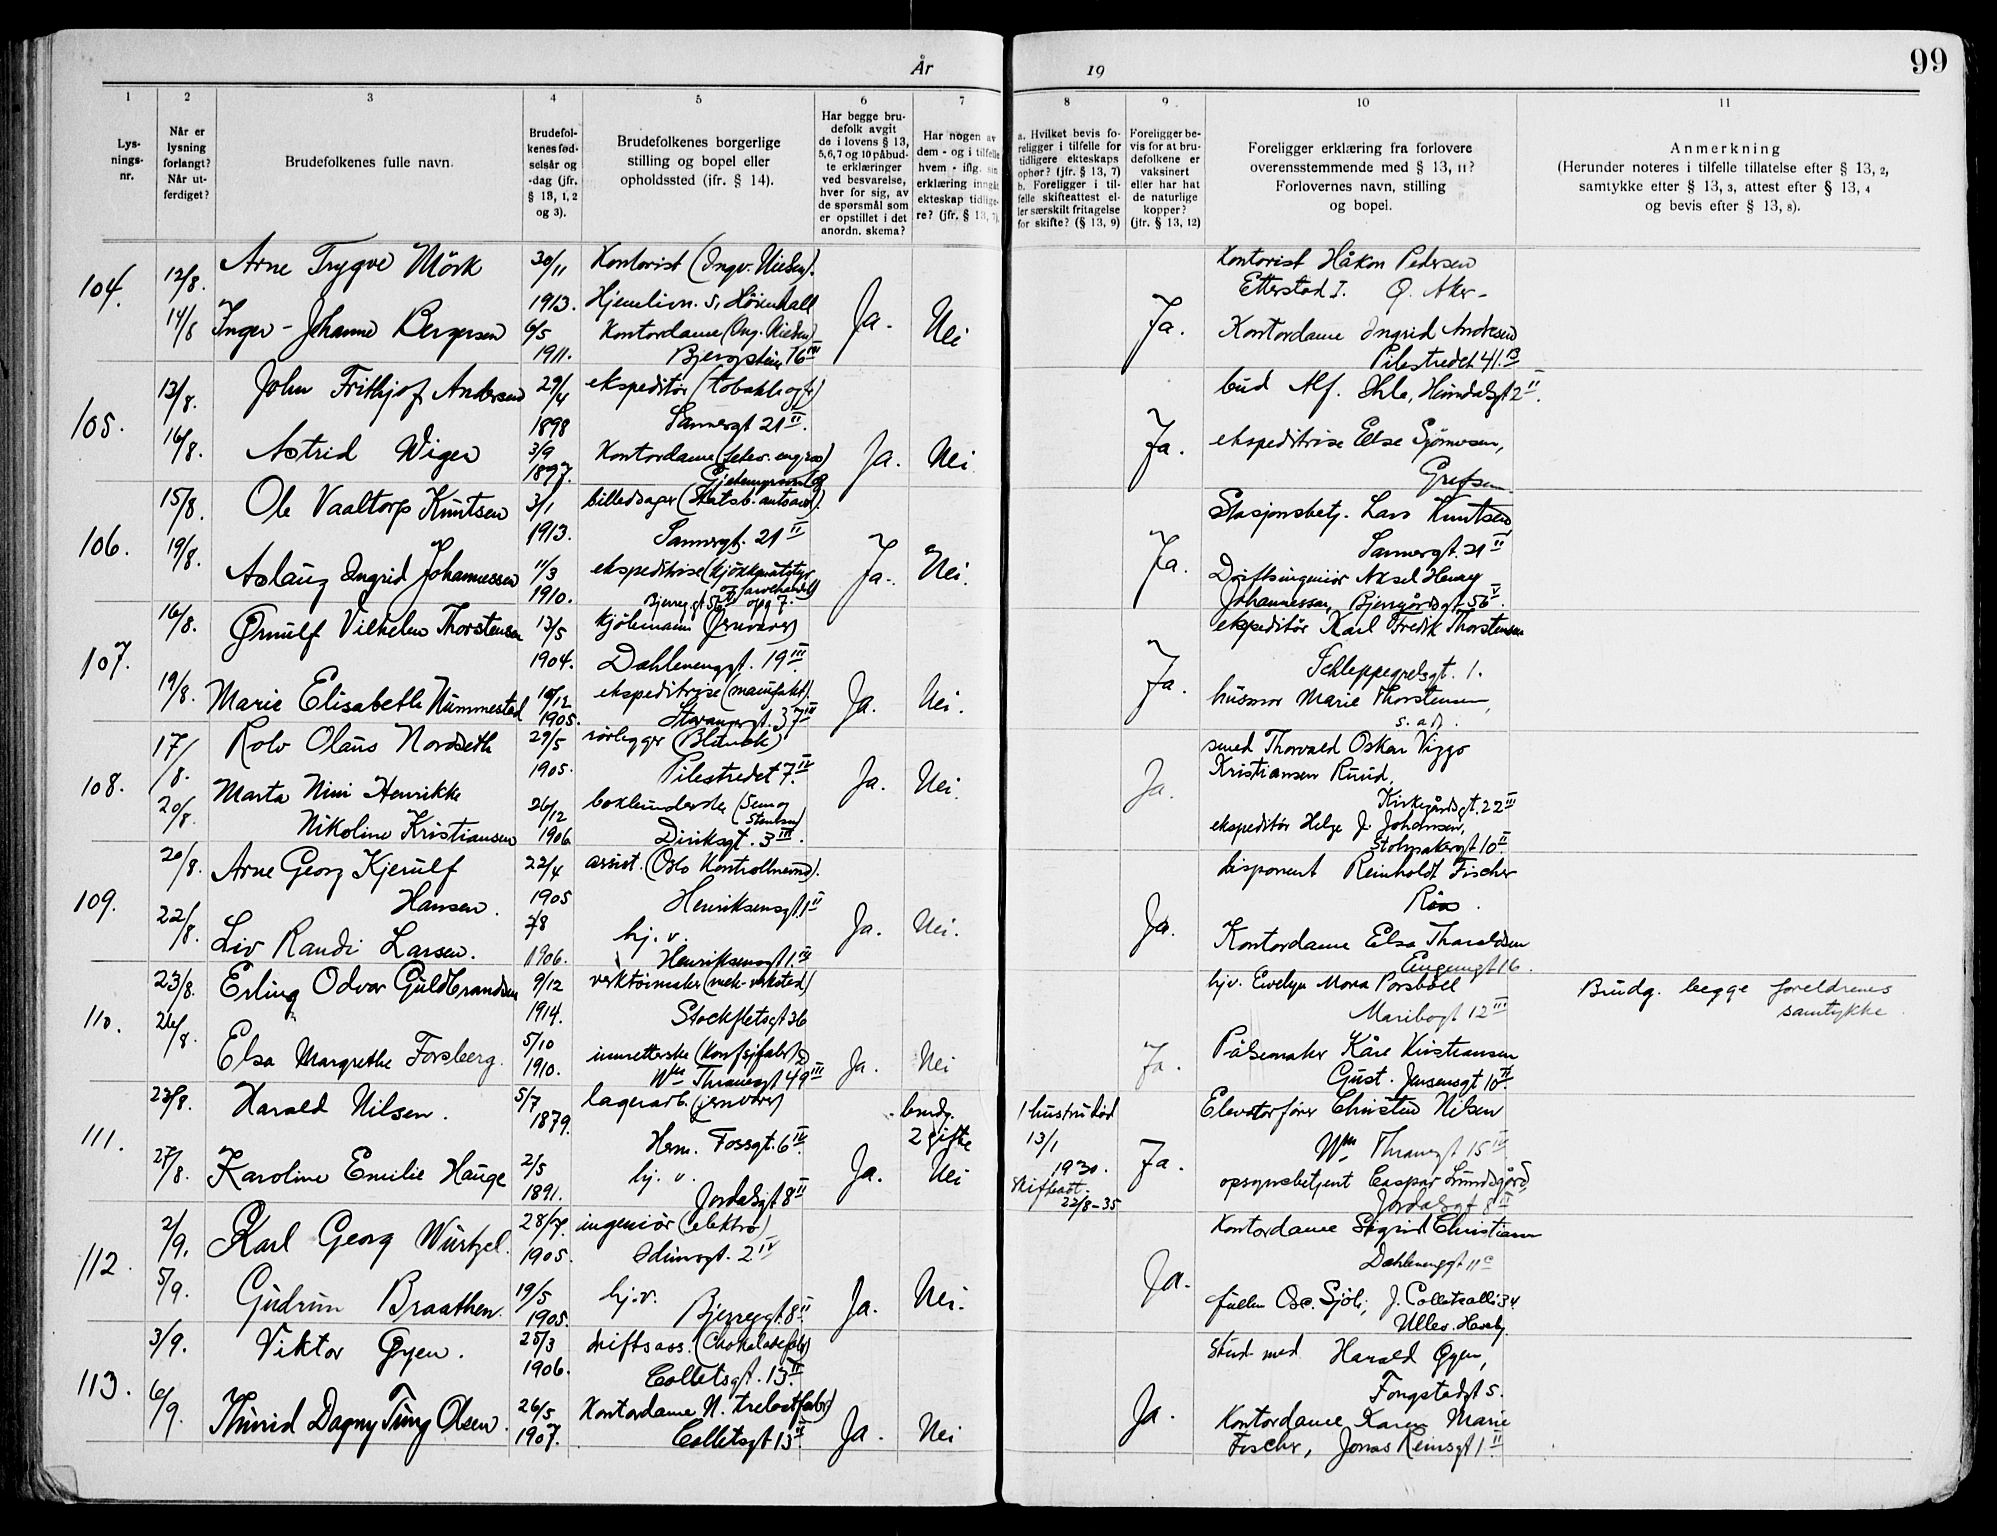 År
19
99
1
2
3
4
5
6
7
8
9
10
11
Lys-
nings-
nr.
Når er
lysning
forlangt?
Når ut-
ferdiget?
Brudefolkenes fulle navn.
Brudefol-
kenes fød-
selsår og
-dag (jfr.
§ 13, 1, 2
og 3).
Brudefolkenes borgerlige
stilling og bopel eller
opholdssted (jfr. § 14).
Har begge bru-
defolk avgit
de i lovens § 13,
5,6,7 og 10 påbud-
te erklæringer
ved besvarelse,
hver for sig, av
de spørsmål som
er opstillet i det
anordn. skema?
Har nogen av
dem - og i tilfelle
hvem - iflg. sin
erklæring inngåt
ekteskap tidlige-
re? (jfr. § 13, 7).
a. Hvilket bevis fo-
religger i tilfelle for
tidligere ekteskaps
ophør? (jfr. § 13, 7)
b. Foreligger i til-
felle skifteattest el-
ler særskilt fritagelse
for skifte? (§ 13, 9)
Foreligger be-
vis for at bru-
defolkene er
vaksinert
eller har hat
de naturlige
kopper?
(jfr. § 13, 12)
Foreligger erklæring fra forlovere
overensstemmende med § 13, 11?
Forlovernes navn, stilling
og bopel.
Anmerkning
(Herunder noteres i tilfelle tillatelse efter § 13, 2,
samtykke efter § 13, 3, attest efter § 13, 4
og bevis efter § 13, 8).
104.
12/8.
14/8
Arne Trygve Mörk
Inger-Johanne Bergersen
30/11
1913.
6/5
1911.
Kontorist (Ingv. Nielsen).
Hjemlivn. 5, Höienhall
Kontordame (Ing. Nielsen)
Bjergstein 76 III
Ja.
Nei
Ja.
Kontorist Håkon Pedersen
Etterstad I. Ö. Aker-
Kontordame Ingrid Andresen
Pilestredet 41. B
105.
13/8.
16/8.
John Frithjof Andersen
Astrid Wiger
29/4
1898
3/9
1897.
ekspeditör
Sannergt 21 II.
Kontordame
Ja.
Nei
Ja.
bud Alf. Ihle, Heimdalsgt 2 II.
ekspeditrise Else
Grefsen
106.
15/8.
19/8.
Ole Vaaltorp Knutsen
Aslaug Ingrid Johannessen
3/1
1913.
11/3
1910.
billedsager
Sannergt. 21 II
ekspeditrise (kjökkenutstyr
Bjerreg.gt 56 V opg 7.
Ja.
Nei.
Ja.
Stasjonsbetj. Lars Knutsen
Sannergt. 21 II
Driftsingeniör Aksel Henry
Johannessen, Bjerregårdsgt 56 V.
107.
16/8.
19/8.
Ørnulf Vilhelm Thorstensen
Marie Elisabeth Nummestad
13/5
1904.
10/12
1905.
Kjölemann (Jernvarer)
Dahlenenggt. 19 III.
ekspeditrise (manufakt).
Stavangergt. 37 III
Ja.
Nei.
Ja.
ekspeditör Karl Fredik Thorstensen
Schleppegrelsgt. 1.
husmor Marie Thorstensen,
s. ad.
108.
17/8.
20/8.
Rolv Olaus Nordseth
Marta Nini Henrikke
Nikoline Kristiansen
29/5
1905.
26/12
1906
rörlegger
Pilestredet 7 IV.
bokbinderske (Sem og
Stenersen)
Diriksgt. 3 III.
Ja.
Nei.
Ja.
smed Thorvald Oskar Viggo
Kristiansen Ruud,
Kirkegårdsgt. 22 III
ekspeditör Helge J. Johansen,
Stolmakergt 10 II.
109.
20/8.
22/8.
Arne Georg Kjerulf
Hansen.
Liv Randi Larsen.
22/4
1905
7/8
1906.
assist. (Oslo Kontrollnemd).
Henriksensgt. 1 II
hj. v.
Henriksensgt 1. IV
Ja.
Nei.
Ja.
disponent Reinholdt Fischer
Röa.
Kontordame Elsa Tharaldsen
Eugengt 16.
110.
23/8.
26/8.
Erling Odvar Guldbrandsen
Elsa Margrethe Forsberg.
9/12
1914.
5/10
1910.
verktöimaker (mek. verksted)
Stockfletsgt 36
innretterske (Konfsjfabr.)
Wm Thranesgt 49 III
Ja.
Nei
Ja.
hjv. Evelyn Mona Porsböll
Maribogt 12 III
Pölsemaker Kåre Kristiansen
Gust. Jensensgt 10 II.
Brudg. begge foreldrenes
samtykke.
111.
23/8.
27/8.
Harald Nilsen.
Karoline Emilie Hauge
5/7
1879.
2/5
1891.
lagerarb. (jernvarer)
Herm. Fossgt. 6 IV.
hj. v.
Jordalsgt 8 II
Ja.
brudg.
2 gifte
Nei
1 hustru död
13/1
1930.
Skifteatt.
22/8-35
Ja.
Elevatorförer Christen Nilsen
Wm Thranesgt 15 IV
opsynsbetjent Caspar Lundsgård,
Jordalsgt 8 II
112.
2/9.
5/9.
Karl Georg Wurtzel.
Gudrun Braathen.
28/7.
1905.
19/5
1905.
ingeniör (elektro)
Odinsgt. 2 IV
hj.v.
Bjerregt. 8 II
Ja.
Nei.
Ja.
Kontordame Sigrid Christiansen
Dahlenenggt 11 c
fullm Osc. Sjöli, J. Colletsalle 34
Ullev. Haveby.
113.
3/9.
6/9.
Viktor Øyen.
Thurid Dagny Tung Olsen.
25/3
1906.
26/5
1907.
driftsass. (Chokoladefabr)
Colletsgt. 13 II.
Kontordame N. trelastfabr.)
Colletsgt 13 II.
Ja.
Nei
Ja.
Stud. med Harald Øyen,
Fougstadgt 5.
Kontordame Karen Marie
Fischer, Jonas Reinsgt 1 II.